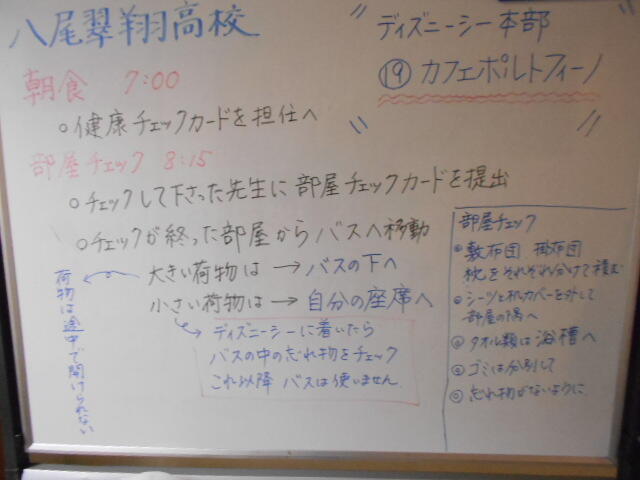 八尾翠翔高校
ディズニーシー本部
⑲ カフェポルトフィーノ
朝食 7:00
○健康チェックカードを担任へ
部屋チェック 8:15
○チェックして下さった先生に部屋チェックカードを提出
○チェックが終った部屋からバスへ移動
大きい荷物は→バスの下へ
小さい荷物は→自分の座席へ
荷物は途中で開けられない
ディズニーシーに着いたら
バスの中の忘れ物をチェック
これ以降バスは使いません。
部屋チェック
◎敷布団 掛布団
枕をそれぞれ分けて積む
◎シーツと枕カバーを外して
部屋の隅へ
◎タオル類は浴槽へ
◎ゴミは分別して
◎忘れ物がないように